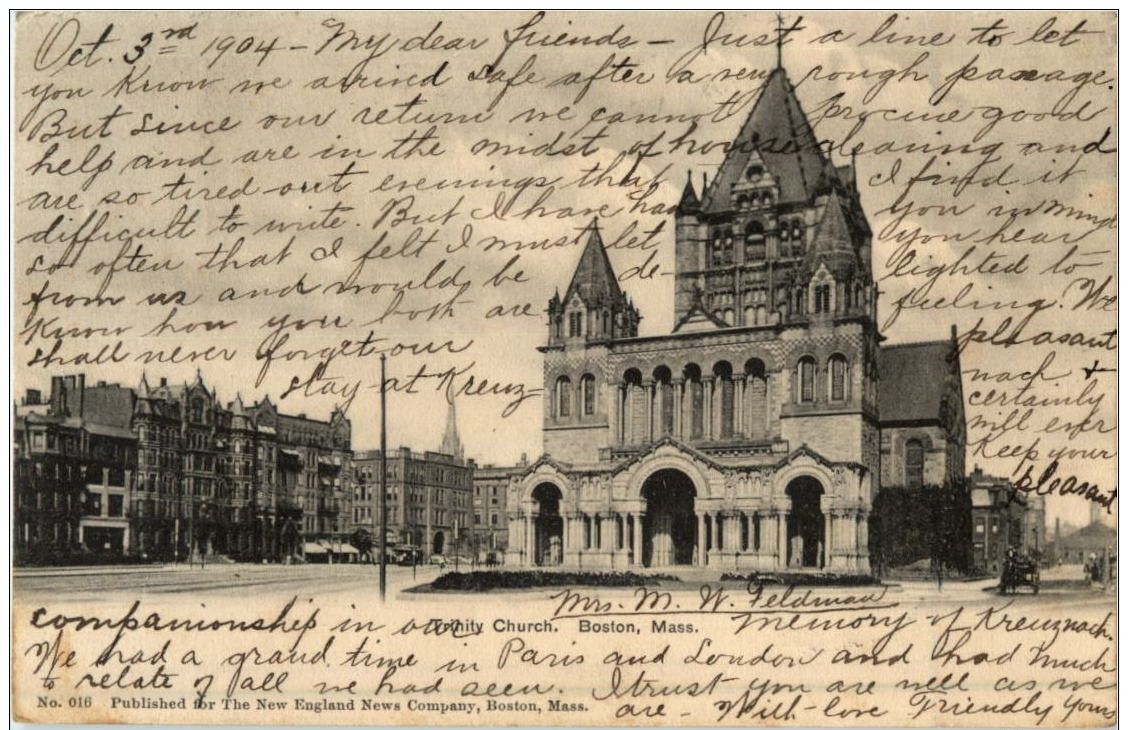 Oct. 3rd 1904 – My dear friends – Just a line to let
you know we arrived safe after a very rough passage.
But since our return we cannot procure good
help and are in the midst of house cleaning and
are so tired out evenings that I find it
difficult to write. But I have had you in mind
so often that I felt I must let you hear
from us and would be de-lighted to
know how you both are feeling. We
shall never forget our pleasant
stay at Kreuz-nach &
certainly
will ever
keep your
pleasant
companionship in our memory of Kreuznach.
Mrs. M. W. Feldman
Trinity Church. Boston, Mass.
We had a grand time in Paris and London and had much
to relate of all we had seen. I trust you are well as we
are – With love Friendly Yours
No. 016 Published for The New England News Company, Boston, Mass.